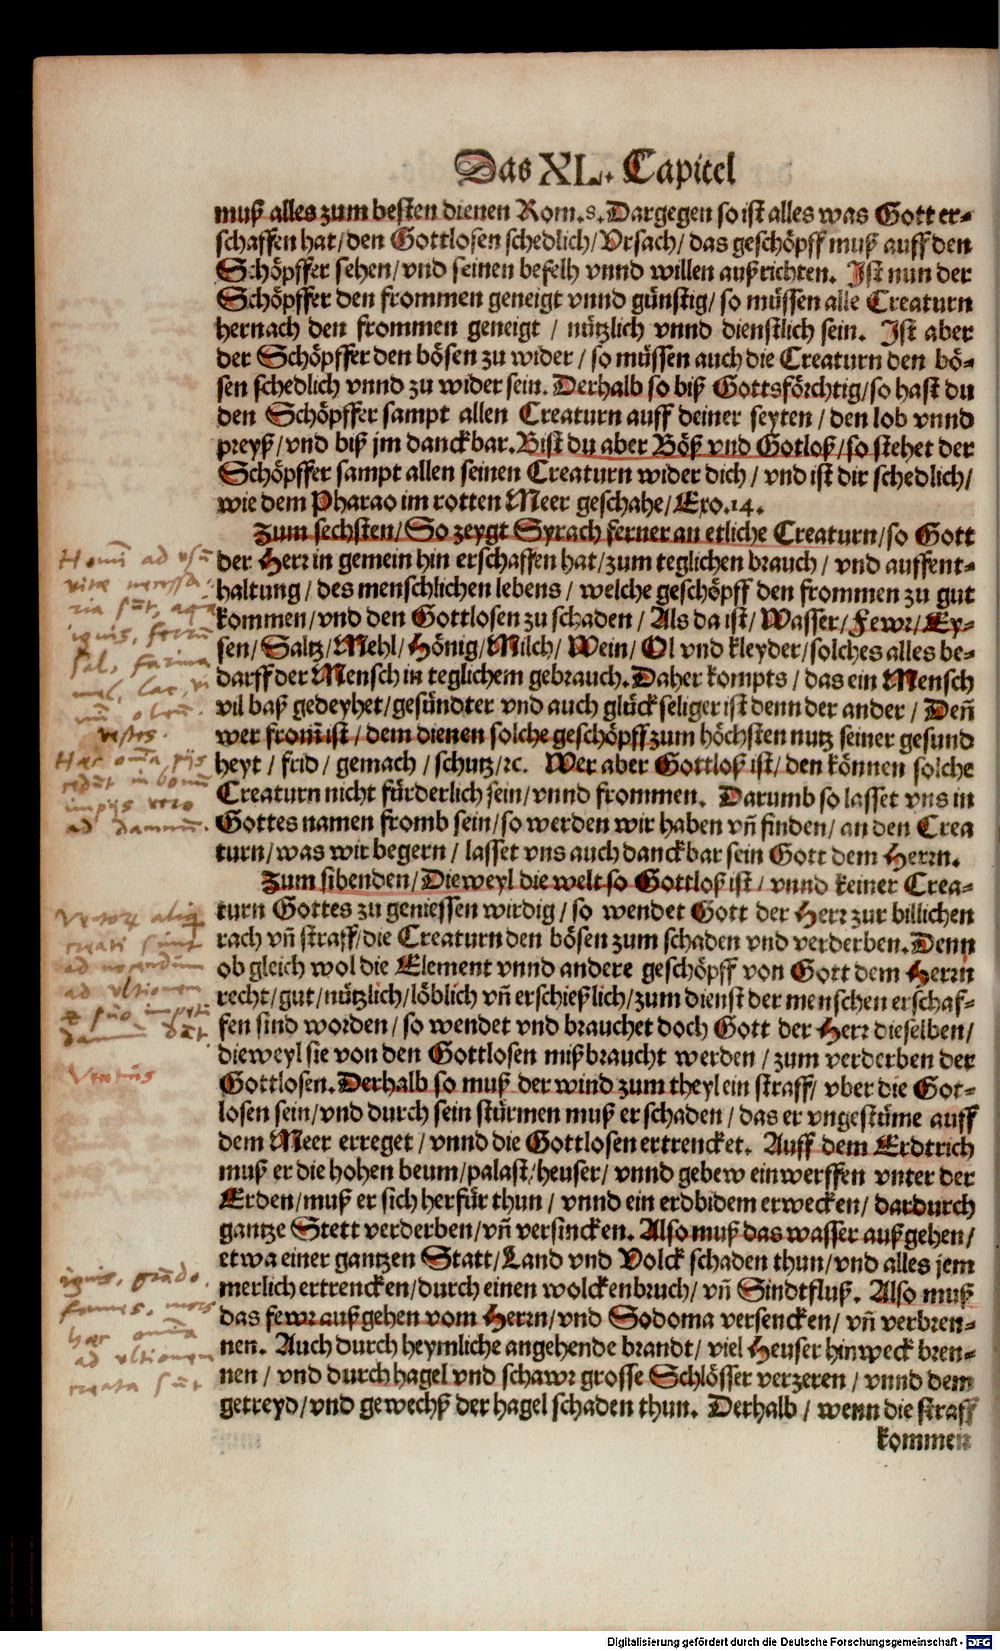 Das XL. Capitel
muß alles zum besten dienen Rom.8. Dargegen so ist alles was Gott er-
schaffen hat/den Gottlosen schedlich/Vrsach/ das geschöpff muß auff den
Schöpffer sehen/vnd seinen befelh vnnd willen außrichten. Ist nun der
Schöpffer den frommen geneigt vnnd günstig/ so müssen alle Creaturn
hernach den frommen geneigt / nützlich vnnd dienstlich sein. Ist aber
der Schöpffer den bösen zu wider / so müssen auch die Creaturn den bö-
sen schedlich vnnd zu wider sein. Derhalb so biß Gottsförchtig/so hast du
den Schöpffer sampt allen Creaturn auff deiner seyten / den lob vnnd
preyß/vnd biß jm danckbar. Bist du aber Böß vnd Gotloß/so stehet der
Schöpffer sampt allen seinen Creaturn wider dich / vnd ist dir schedlich/
wie dem Pharao im rotten Meer geschahe/Exo.14.
Zum sechsten/So zeygt Syrach ferner an etliche Creaturn/so Gott
der Herr in gemein hin erschaffen hat/zum teglichen brauch/ vnd auffent-
haltung / des menschlichen lebens / welche geschöpff den frommen zu gut
kommen/vnd den Gottlosen zu schaden / Als da ist/ Wasser/Fewr/Ey-
sen/Saltz/Mehl/Hönig/Milch/Wein/Ol vnd kleyder/solches alles be-
darff der Mensch in teglichem gebrauch. Daher kompts / das ein Mensch
vil baß gedeyhet/gesündter vnd auch glückseliger ist denn der ander / Deñ
wer from̃ ist / dem dienen solche geschöpff zum höchsten nutz seiner gesund
heyt / frid / gemach / schutz/ꝛc. Wer aber Gottloß ist/den können solche
Creaturn nicht fürderlich sein/vnnd frommen. Darumb so lasset vns in
Gottes namen fromb sein/so werden wir haben vñ finden/ an den Crea
turn/was wir begern / lasset vns auch danckbar sein Gott dem Herrn.
Zum sibenden/Dieweyl die welt so Gottloß ist / vnnd keiner Crea-
turn Gottes zu geniessen wirdig/so wendet Gott der Herr zur billichen
rach vñ straff/die Creaturn den bösen zum schaden vnd verderben. Denn
ob gleich wol die Element vnnd andere geschöpff von Gott dem Herrn
recht/gut/nützlich/löblich vñ erschießlich/zum dienst der menschen erschaf-
fen sind worden/so wendet vnd brauchet doch Gott der Herr dieselben/
dieweyl sie von den Gottlosen mißbraucht werden / zum verderben der
Gottlosen. Derhalb so muß der wind zum theyl ein straff/ vber die Got-
losen sein/vnd durch sein stürmen muß er schaden / das er vngestüme auff
dem Meer erreget / vnnd die Gottlosen ertrencket. Auff dem Erdtrich
muß er die hohen beum/palast/heuser/ vnnd gebew einwerffen vnter der
Erden/muß er sich herfür thun / vnnd ein erdbidem erwecken/ dardurch
gantze Stett verderben/vñ versincken. Also muß das wasser außgehen/
etwa einer gantzen Statt/Land vnd Volck schaden thun/vnd alles jem
merlich ertrencken/durch einen wolckenbruch/ vñ Sindtfluß. Also muß
das fewr außgehen vom Herrn/vnd Sodoma versencken/ vñ verbren-
nen. Auch durch heymliche angehende brandt/ viel Heuser hinweck bren-
nen / vnd durch hagel vnd schawr grosse Schlösser verzeren / vnnd dem
getreyd/vnd gewechß der hagel schaden thun. Derhalb / wenn die straff
kommen
Homĩ ad vsũ
vitæ necessa-
ria sũt, aqa
ignis, ferrũ
sal, farina
mel, lac, vi
nũ oleũ.
vestes.
Hæc oĩa pijs
cedũt in bonũ
impijs vero
ad damnũ.
creati sunt
ad nocendum
ad vltionem
Ventus
ignis, grãdo.
fames, mors
hæc omĩa
ad vltionem
creata sũt
Digitalisierung gefördert durch die Deutsche Forschungsgemeinschaft - DFG